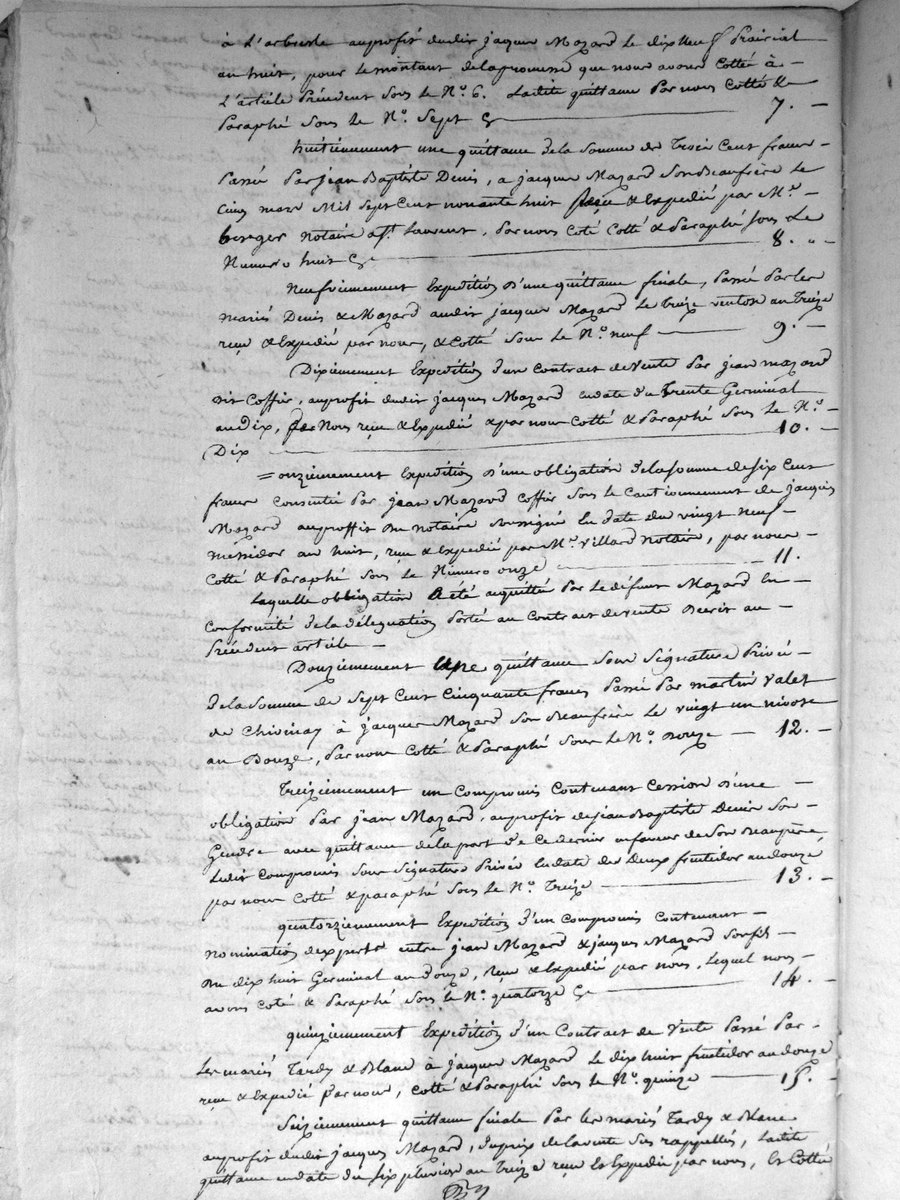 à L'arbresle auprofit dudit jacques Mazard Le dix Neuf Prairial
an huit, pour le montant delapromesse que nous avons Cotté à —
L'article Précédent Sous le N.º 6. Ladite quittance Par nous Cotté &
Paraphé Sous Le N.º Sept — 7. —
huitiemement une quittance dela Somme de Trois Cent francs
Passé Par jean Baptiste Denis, a jacques Mazard Son Beaufrère Le
Cinq mars Mil Sept Cent nonante huit reçue & Expedié par M.e —
berger notaire a S.t Laurent, Par nous Coté Cotté & Paraphé Sous Le
Numero huit — 8. "
Neufviemement Expedition d'une quittance finale, Passé Par les
mariés Denis & Mazard audit jacques Mazard Le treize ventose an Treize
reçue & Expedié par nous, & Cotté Sous Le N.º neuf — 9. —
Dixiemement Expedition d'un Contract de Vente Par jean mazard
dit Coffir, auprofit dudit jacques Mazard endate du Trente Germinal
an Dix, Par Nous reçu & Expedié & par nous Cotté & Paraphé Sous Le N.º —
Dix — 10. —
= onziemement Expedition d'une obligation dela Somme de Six Cent
francs Consentie Par jean Mazard Coffir Sous le Cautionnement de jacques
Mazard auproffit du notaire Soussigné En date du vingt neuf —
messidor an huit, reçue & Expedié par M.e Villard notaire, par nous
Cotté & Paraphé Sous Le Numero onze — 11. —
Laquelle obligation A été acquittée Par Le défunt Mazard En —
Conformité dela délégation Portée au Contract de Vente Decrit au —
Précédent article —
Douziemement Une quittance Sous Signature Privée
dela Somme de Sept Cent Cinquante francs Passé Par martin Valet
de Chivinay à jacques Mazard Son Beaufrère Le vingt un nivose
an Douze, Par nous Cotté & Paraphé Sous Le N.º Douze — 12. —
Treiziemement un Compromis Contenant Cession d'une —
obligation Par jean Mazard, auprofit de jean Baptiste Denis Son —
Gendre avec quittance dela part de Ce dernier enfaveur de Son Beaupère,
Ledit Compromis Sous Signature Privée endate du Deux fructidor an douze,
par nous Cotté & paraphé Sous Le N.º Treize — 13. —
quatorziemement Expedition d'un Compromis Contenant —
nomination d'experts entre jean Mazard & jacques Mazard Son fils —
du dix huit Germinal an douze, reçu & Expedié par nous, Lequel nous —
avons Coté & Paraphé Sous Le N.º quatorze — 14. —
quinziemement Expedition d'un Contract de Vente Passé Par —
Les mariés Tardy & Blanc à jacques Mazard Le dix huit fructidor an douze
reçu & Expedié Par nous, Cotté & Paraphé Sous Le N.º quinze — 15. —
Seiziemement quittance finale Par les mariés Tardy & Blanc
auprofit dudit jacques Mazard, duprix de lavente Sus rappellés, Ladite
quittance endate du Six pluviose an Treize reçue Et Expediée par nous, Et Cottée